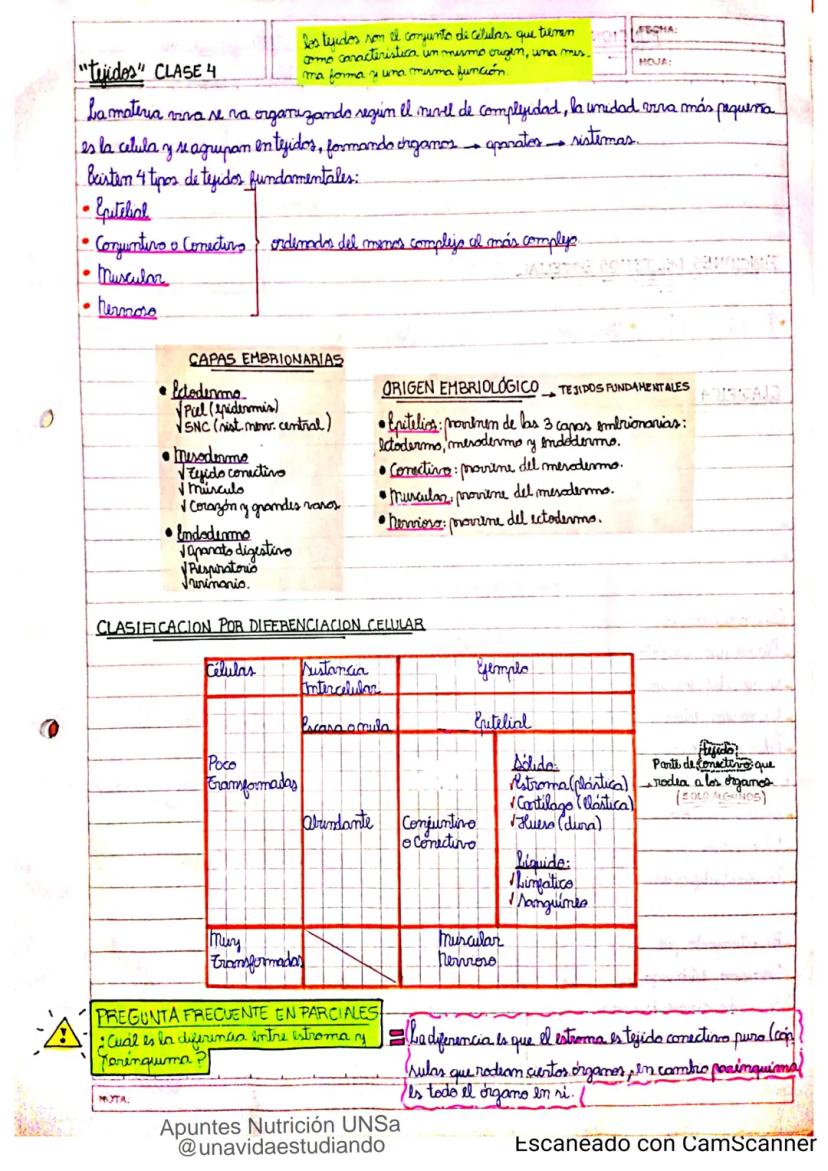 "Tejidos" CLASE 4
Los tejidos son el conjunto de células que tienen
como característica un mismo origen, una mis
ma forma y una misma función.
FECHA:
HOJA:
La materia viva se va organizando según el nivel de complejidad, la unidad viva más pequeña
es la célula y se agrupan en tejidos, formando órganos → aparatos → sistemas.
Existen 4 tipos de tejidos fundamentales:
• Epitelial
• Conjuntivo o Conectivo
ordenados del menos complejo al más complejo
• Muscular
• Nervioso
CAPAS EMBRIONARIAS
• Ectodermo
√ Piel (epidermis)
√ SNC (sist. nerv. central)
• Mesodermo
√ Tejido conectivo
√ Músculo
√ Corazón y grandes vasos
• Endodermo
√ Aparato digestivo
√ Respiratorio
√ urinario.
ORIGEN EMBRIOLÓGICO → TEJIDOS FUNDAMENTALES
• Epitelios: provienen de las 3 capas embrionarias:
Ectodermo, mesodermo y Endodermo.
• Conectivo: proviene del mesodermo.
• Muscular: proviene del mesodermo.
• Nervioso: proviene del ectodermo.
CLASIFICACION POR DIFERENCIACION CELULAR
Células
Sustancia
Intercelular
Ejemplo
Escasa o nula
Epitelial
Poco
Transformadas
Abundante
Conjuntivo
o Conectivo
Sólido:
√ Estroma (plástica)
√ Cartílago (elástica)
√ Hueso (dura)
Líquido:
√ Linfático
√ Sanguíneo
Tejido
Parte de conectivo que
rodea a los órganos
(SOLO ALGUNOS)
Muy
Transformadas
Muscular
Nervioso
PREGUNTA FRECUENTE EN PARCIALES
¿Cuál es la diferencia entre Estroma y
Parénquima?
= La diferencia es que el estroma es tejido conectivo puro (cáp
sulas que rodean ciertos órganos, en cambio parénquima
es todo el órgano en sí.
NOTA:
Apuntes Nutrición UNSa
@unavidaestudiando
Escaneado con CamScanner